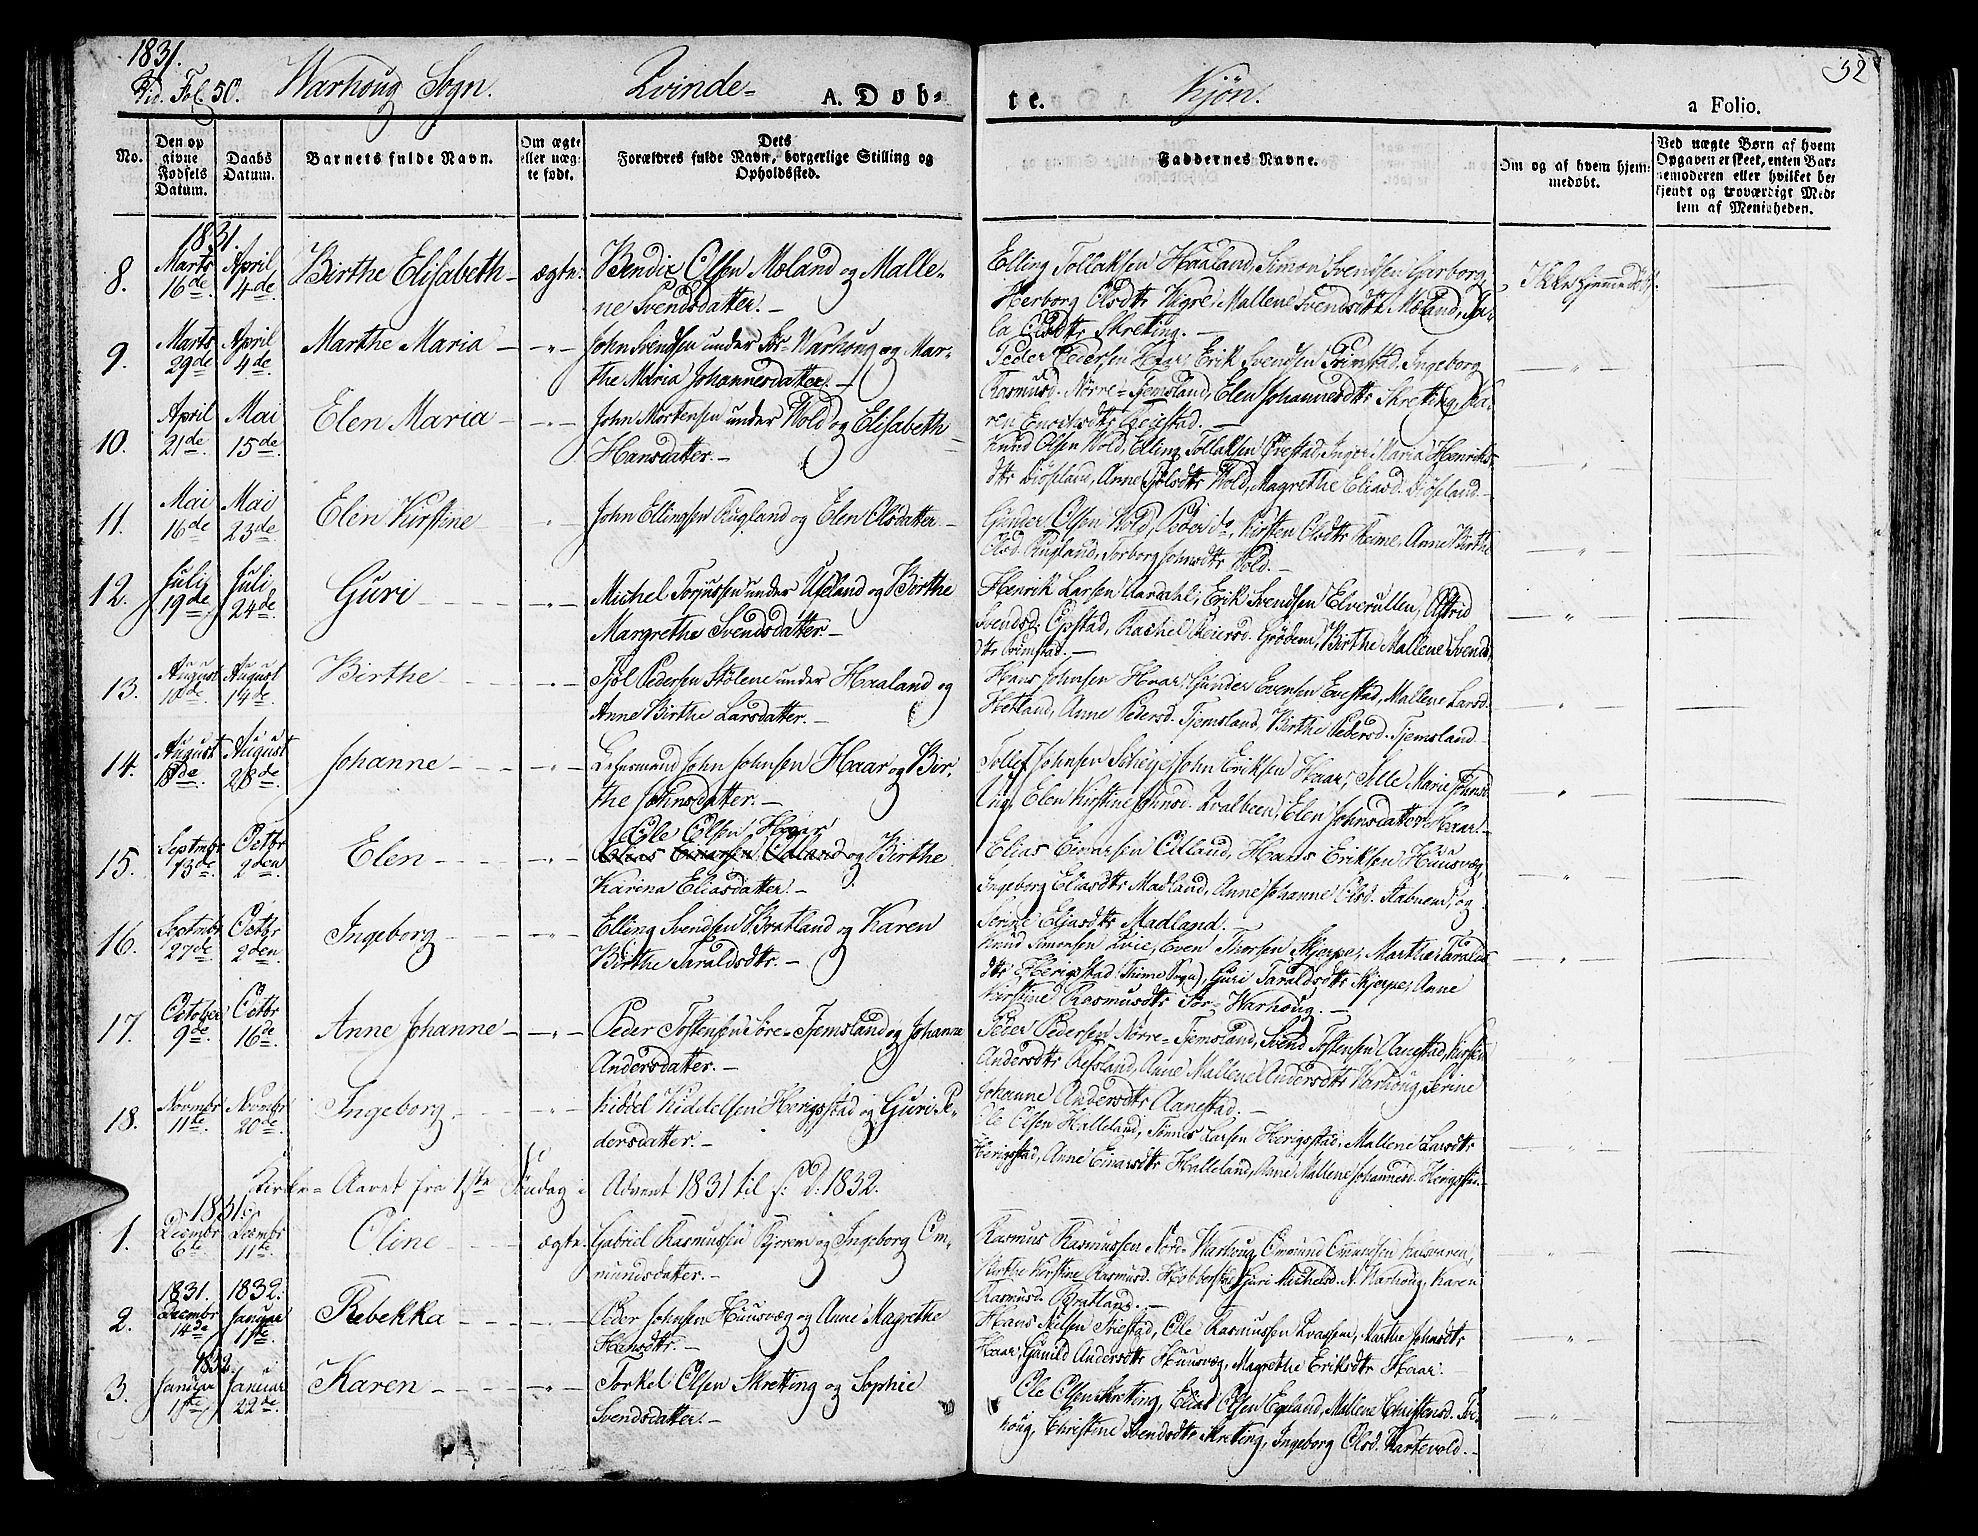 1831.
Vid. Fol. 50. Warhoug Sogn. Qvinde- A. Døb-
te. Kjøn. 52
a Folio.
No.
Den op
givne
Fødsels
Datum.
Daabs
Datum.
Barnets fulde Navn.
Om ægte
eller uæg-
te født.
Dets
Forældres fulde Navn, borgerlige Stilling og
Opholdssted.
Faddernes Navne.
Om og af hvem hjem-
medøbt.
Ved uægte Børn af hvem
Opgaven er skeet, enten Bar-
nemoderen eller hvilket be
kjendt og troværdigt Med-
lem af Menigheden.
1831.
8. Marts 16de April 4de Birthe Elisabeth ægte. Bendix Olsen Mæland og Malle-
ne Svendsdatter.
Elling Tollaksen Haaland, Simon Svendsen Garborg,
Herborg Olsdtr Vigre, Mallene Svendsdtr Mæland,
Olsdtr Skretting.
Ikke hjemmedøbt.
9. Marts 29de April 4de Marthe Maria - " - John Svendsen under Sør-Warhoug og Mar-
the Maria Johannesdatter.
Peder Pedersen Haar, Erik Svendsen Primstad, Ingeborg
Rasmusd. Nørre-Tjemsland, Elen Johannesdtr Skretting, Ka-
ren
10. April 21de Mai 15de Elen Maria - " - John Mortensen under Wold og Elisabeth
Hansdatter.
Knud Olsen Wold, Elling Tollaksen Inger Maria Henriks
dtr Anne Wold, Magrethe Eliasd.
11. Mai 16de Mai 23de Elen Kirstine " John Ellingsen Rugland og Elen Olsdatter
Gunder Olsen Wold, Peder do, Kirsten Olsdtr Reime, Anne Birthe
Olsd. Rugland, Torborg Johnsdtr Wold.
12. Juli 19de Juli 24de Guri " Michel Torjussen under Ueland og Birthe
Margrethe Svendsdatter
Henrik Larsen Aardahl, Erik Svendsen Astrid
Svendsd. Opstad, Rachel Reiersd. Grødem, Birthe Mallene Svends
dtr Primstad.
13. August August 14de Birthe " Pedersen Stølene under Haaland og
Anne Birthe Larsdatter.
Hans Johnsen Haar, Gunder Evensen Evestad, Mallene Larsd.
Hetland, Anne Pedersd. Tjemsland, Birthe Pedersd. Tjemsland
14. August August 28de Johanne " Lehnsmand John Johnsen Haar og Bir-
the Johnsdatter.
Tollef Johnsen John Eriksen Haar, Marie
Elen Kirstine Johnsd. Qvalbeen, Elen Johnsdatter Haar.
15. Septembr 13de Octbr 2den Elen " Ole Olsen Haar
og Birthe
Karina Eliasdatter.
Elias Einarsen Odland, Hans Eriksen Huusvæg,
Ingeborg Eliasdtr Madland, Anne Johanne Olsd. og
Serine Eliasdtr Madland.
16. Septmbr 27de Octbr 2den Ingeborg " Elling Svendsen Bratland og Karen
Birthe Taraldsdtr.
Knud Simonsen Qvie, Even Thorsen Skjerpe, Marthe Taralds
dtr Herigstad (Thime Sogn), Guri Taraldsdtr Skjerpe, Anne
Kirstine Rasmusdtr Sør-Warhoug.
17. October 9de Octbr 16de Anne Johanne - " - Peder Tostensen Søre-Tjemsland og Johanne
Andersdatter.
Peder Pedersen Nørre-Tjemsland, Svend Tostensen Aanestad, Kirsten
Andersdtr Refsland, Anne Mallene Andersdtr Warhoug, Serine
Johanne Andersdtr Aanestad.
18. Novmbr 11te Novmbr 20de Ingeborg " Kiddel Kiddelsen Herigstad og Guri Pe-
dersdatter.
Ole Olsen Halleland, Tønnes Larsen Herigstad, Mallene Larsdtr
Herigstad, Anne Einarsdtr Halleland, Anne Mallene Johannesd. Herigstad.
Kirke-Aaret fra 1ste Søndag i Advent 1831 til s: d: 1832.
1831.
1. Decmbr 6te Decmbr 11te Oline ægte. Gabriel Rasmussen Bjorem og Ingeborg Om-
mundsdatter.
Rasmus Rasmussen Nord-Warhoug, Ommund Omundsen
Birthe Kirstine Rasmusd. Guri Michelsd. N. Warhoug, Karen
Rasmusd. Bratland.
1831. 1832.
2. Decmbr 14de Januar 1ste Rebekka " Peder Johnsen Huusvæg og Anne Magrethe
Hansdtr.
Hans Nielsen Friestad, Ole Rasmussen Qvassem, Marthe Johnsdtr
Haar, Gunild Andersdtr Huusvæg, Magrethe Eriksdtr Haar.
1832.
3. Januar 1ste Januar 22de Karen " Torkel Olsen Skretting og Sophie
Svendsdatter.
Ole Olsen Skretting, Elias Olsen Egeland, Mallene Christensd.
houg, Christine Svendsdtr Skretting, Ingeborg Olsd. Hartevold.